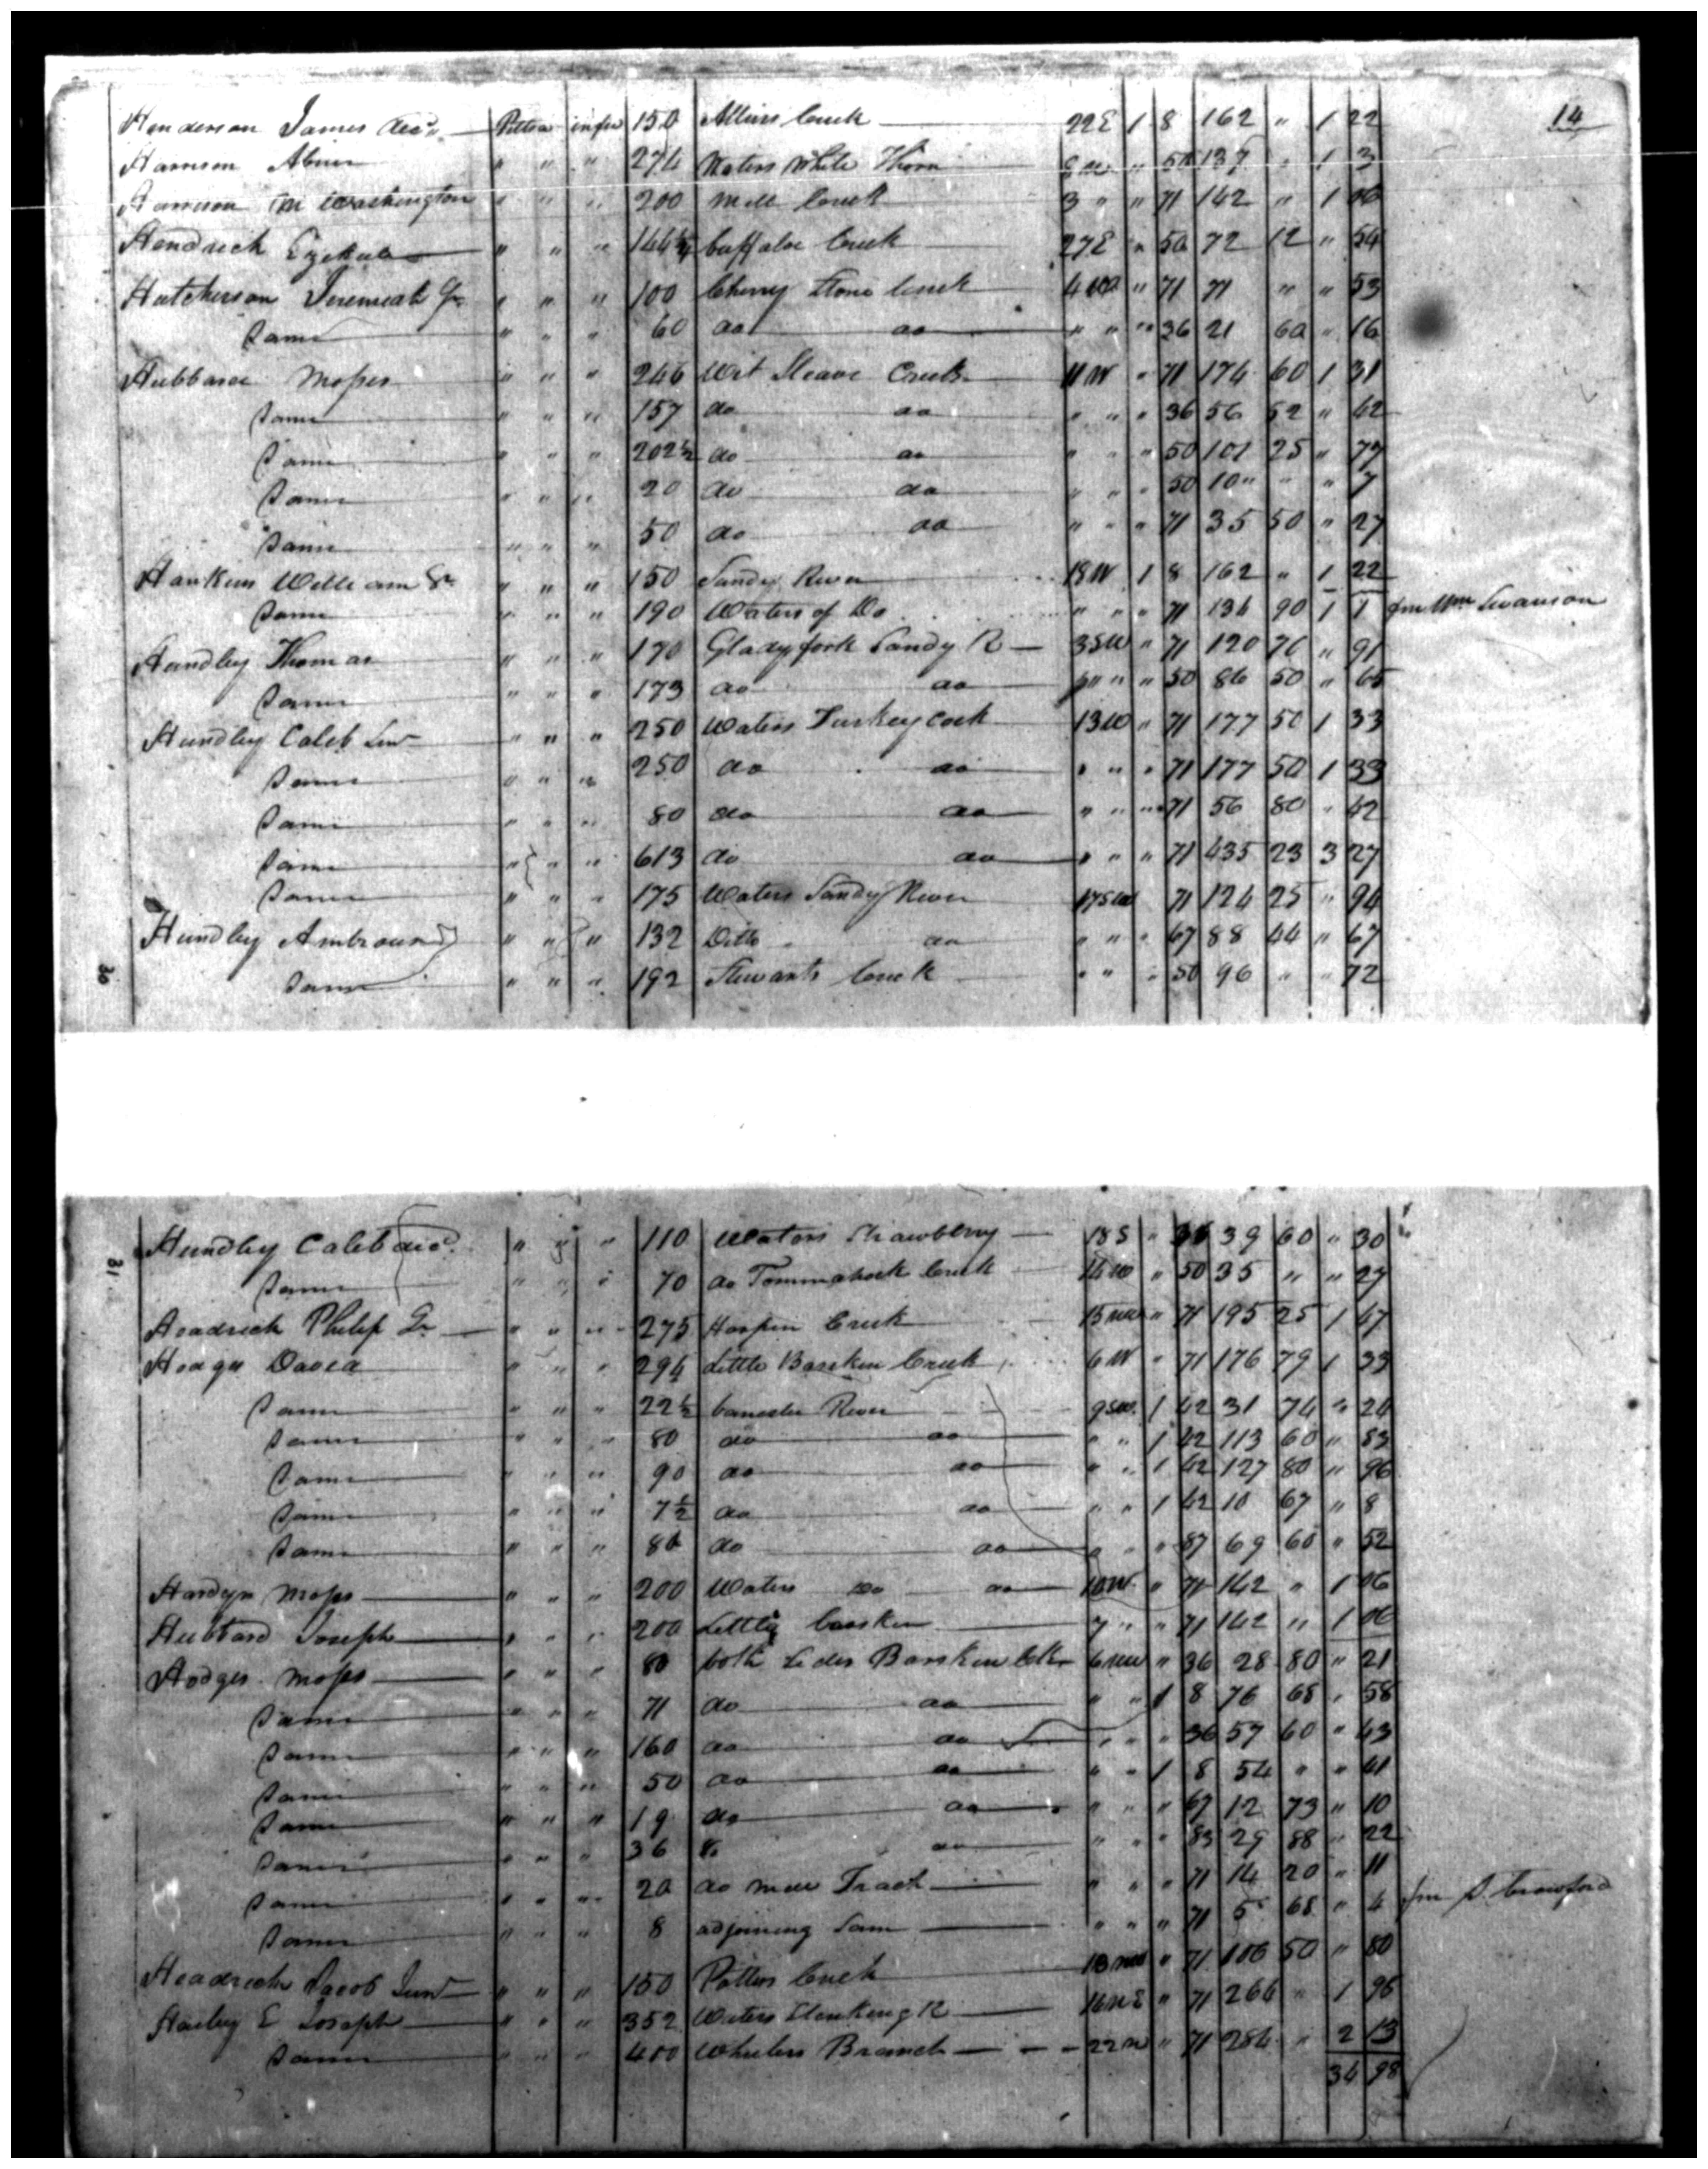 14
Henderson James decd Pittsa in fee 150 Allins Creek 22 E 1 8 162 " 1 22
Harrison Abner " " " 274 Waters White Thorn " 50 137 " 1 3
Harrison Washington " " " 200 Mill Creek 3 " " 71 142 " 1 06
Hendrick Ezekiel " " " 144 1/4 buffaloe Creek 27 E " 50 72 12 " 54
Hutcherson Jeremiah Jr " " " 100 Cherry Stone Creek 4 " 71 71 " " 53
Same " " " 60 do do " " " 36 21 60 " 16
Hubbard Moses " " " 246 Wit Sleave Creek 11 W " 71 174 60 1 31
Same " " " 157 do do " " " 36 56 52 " 42
Same " " " 202 1/2 do do " " " 50 101 25 " 77
Same " " " 20 do do " " " 50 10 " " " 7
Same " " " 50 do do " " " 71 35 50 " 27
Hankins William Sr " " " 150 Sandy River 18 W 1 8 162 " 1 22
Same " " " 190 Waters of Do " " " 71 134 90 1 1 fm Wm Swanson
Hundley Thomas " " " 170 Glady fork Sandy R 3 SW " 71 120 70 " 91
Same " " " 173 do do " " " 50 86 50 " 65
Hundley Caleb Senr " " " 250 Waters Turkey Cock 13 W " 71 177 50 1 33
Same " " " 250 do do " " " 71 177 50 1 33
Same " " " 80 do do " " " 71 56 80 " 42
Same " " " 613 do do " " " 71 435 23 3 27
Same " " " 175 Waters Sandy River 17 SW 71 124 25 " 94
Hundley Ambrous " " " 132 Ditto do " " " 67 88 44 " 67
30 Same " " " 192 Stewarts Creek " " " 50 96 " " 72
31 Hundley Caleb decd " " " 110 Waters Strawberry 18 S " 36 39 60 " 30
Same " " " 70 do Tommahock Creek 14 W " 50 35 " " 27
Headrick Philip Jr " " " 275 Harpin Creek 15 NW " 71 195 25 1 47
Hodges David " " " 294 Little Bearskin Creek 6 W " 71 176 79 1 33
Same " " " 22 1/2 banester River 9 SW 1 42 31 74 " 24
Same " " " 80 do do " " 1 42 113 60 " 83
Same " " " 90 do do " " 1 42 127 80 " 96
Same " " " 7 1/2 do do " " 1 42 10 67 " 8
Same " " " 80 do do " " " 87 69 60 " 52
Hardyn Moses " " " 200 Waters Do do 10 W " 71 142 " 1 06
Hubbard Joseph " " " 200 Little bearskin 7 " " 71 142 " 1 06
Hodges Moses " " " 80 both Sides Bearskin Ck 6 NW " 36 28 80 " 21
Same " " " 71 do do " " 1 8 76 68 " 58
Same " " " 160 do do " " " 36 57 60 " 43
Same " " " 50 do do " " 1 8 54 " " 41
Same " " " 19 do do " " " 67 12 73 " 10
Same " " " 36 do do " " " 83 29 88 " 22
Same " " " 20 do Mill Track " " " 71 14 20 " 11
Same " " " 8 adjoining Same " " " 71 5 68 " 4 fm Crawford
Headrick Jacob Junr " " " 150 Potters Creek 18 NW " 71 106 50 " 80
Hailey E Joseph " " " 352 Waters Stanking R 16 NE " 71 264 " 1 96
Same " " " 400 Wheelers Branch 22 N " 71 284 " 2 13
34 98